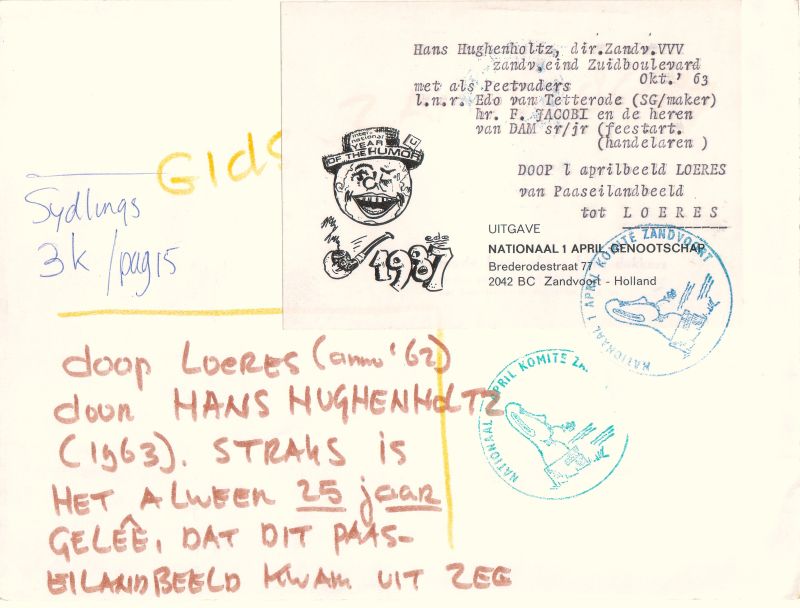 Hans Hughenholtz, dir.Zandv.VVV
zandv.eind Zuidboulevard
Okt.' 63
met als Peetvaders
l.n.r. Edo van Tetterode (SG/maker)
hr. F. JACOBI en de heren
van DAM sr/jr (feestart.
(handelaren )
DOOP l aprilbeeld LOERES
van Paaseilandbeeld
tot LOERES
inter-
national
YEAR
OF THE HUMOR
edo
1987
UITGAVE
NATIONAAL 1 APRIL GENOOTSCHAP
Brederodestraat 77
2042 BC Zandvoort - Holland
NATIONAAL 1 APRIL KOMITE ZANDVOORT
GIDS
3k /pag 15
doop LOERES (anno '62)
door HANS HUGHENHOLTZ
(1963). STRAKS IS
HET ALWEER 25 jaar
GELEÊ, DAT DIT PAAS-
EILANDBEELD KWAM UIT ZEE
NATIONAAL APRIL KOMITE ZA